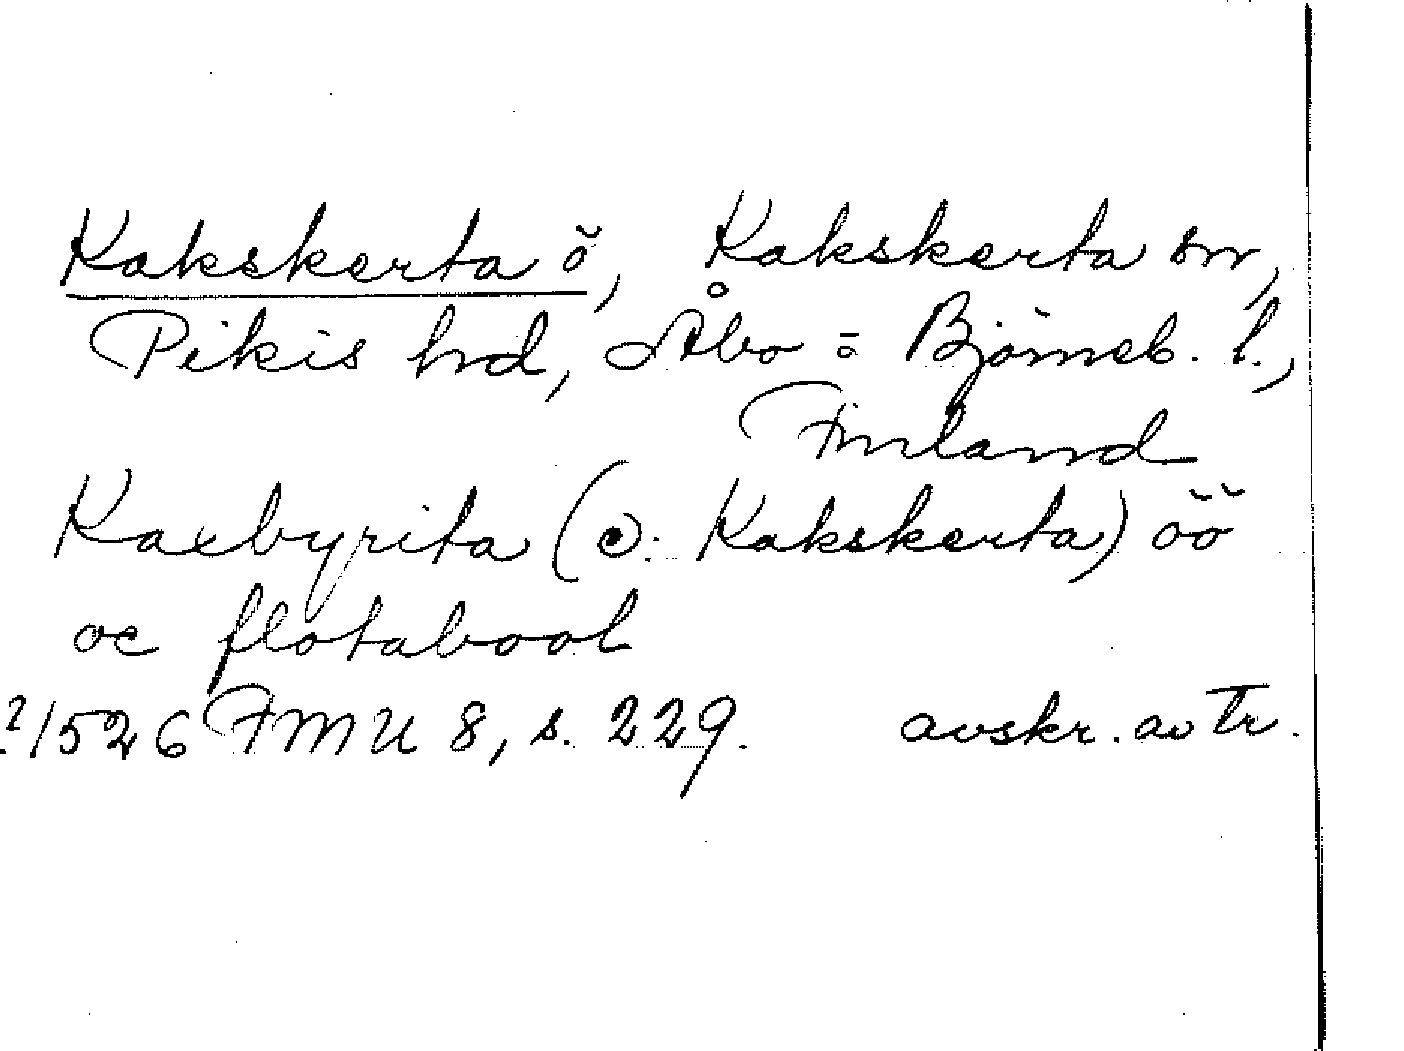 Kakskerta ö, Kakskerta sn,
Pikis hrd, Åbo = Björneb. l.,
Finland
Kaxbyrita (ɔ: Kakskerta) öö
oc flotabool
1526 FMU 8, s. 229. avskr. av Tr.